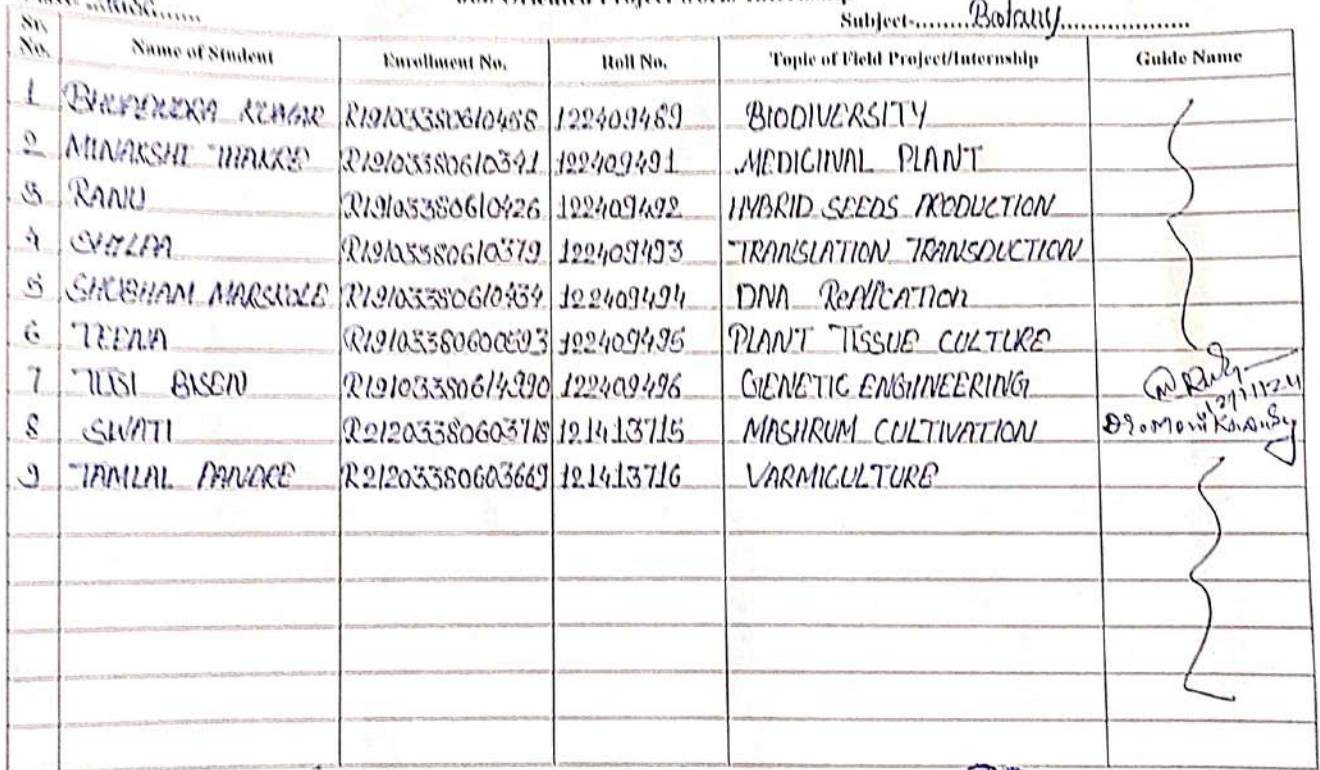 Subject-........Botany..................
Sr. No. Name of Student Enrollment No. Roll No. Topic of Field Project/Internship Guide Name
1 R19103380610458 122409489 BIODIVERSITY
2 MINAKSHI THAKRE R19103380610391 122409491 MEDICINAL PLANT
3 RANU R19103380610426 122409492 HYBRID SEEDS PRODUCTION
4 SHILPA R19103380610379 122409493 TRANSLATION TRANSDUCTION
5 SHUBHAM MARSKOLE R19103380610434 122409494 DNA RePlICATION
6 TEENA 122409495 PLANT TISSUE CULTURE
7 BISEN R19103380614990 122409496 GENETIC ENGINEERING
8 SWATI R21203380603718 121413715 MASHRUM CULTIVATION
9 TAMLAL PANDRE R21203380603669 121413716 VARMICULTURE